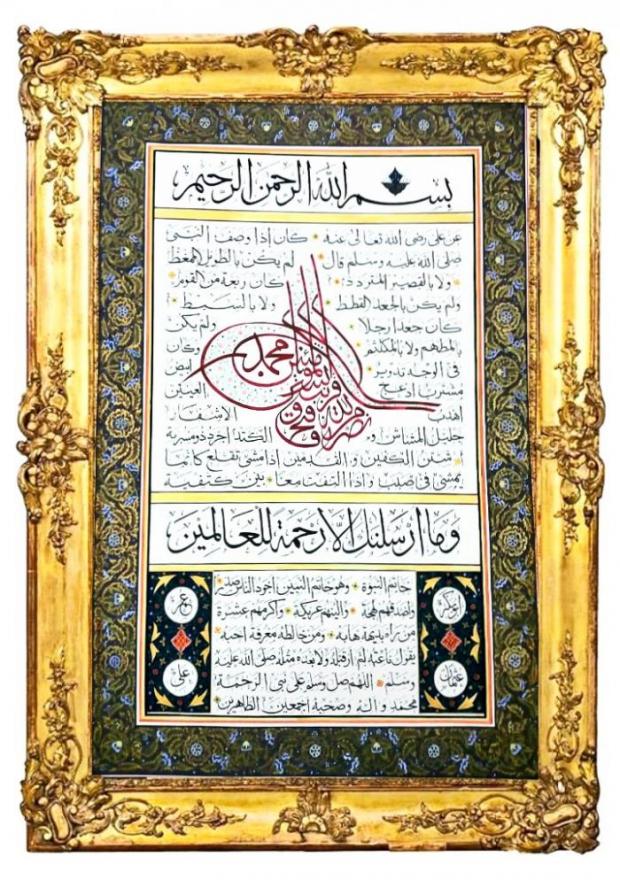 بسم الله الرحمن الرحيم
عن على رضى الله تعالى عنه كان اذا وصف النبى
صلى الله عليه وسلم قال لم يكن بالطويل الممغط
ولا بالقصير المتردد كان ربعة من القوم
ولم يكن بالجعد القطط ولا بالسبط
كان جعدا رجلا ولم يكن
بالمطهم ولا بالمكلثم وكان
فى الوجه تدوير ابيض
مشرب ادعج العينين
اهدب الاشفار
جليل المشاش والكتد اجرد ذو مسربة
شثن الكفين والقدمين اذا مشى تقلع كانما
يمشى فى صبب واذا التفت التفت معا بين كتفيه
نصر من الله وفتح قريب وبشر المؤمنين يا محمد
وما ارسلنك الا رحمة للعالمين
خاتم النبوة وهو خاتم النبيين اجود الناس صدرا
واصدقهم لهجة والينهم عريكة واكرمهم عشرة
من راه بديهة هابه ومن خالطه معرفة احبه
يقول ناعته لم ار قبله ولا بعده مثله صلى الله عليه
وسلم اللهم صل وسلم على نبى الرحمة
محمد واله وصحبه اجمعين الطاهرين
ابوبكر
عمر
عثمان
على